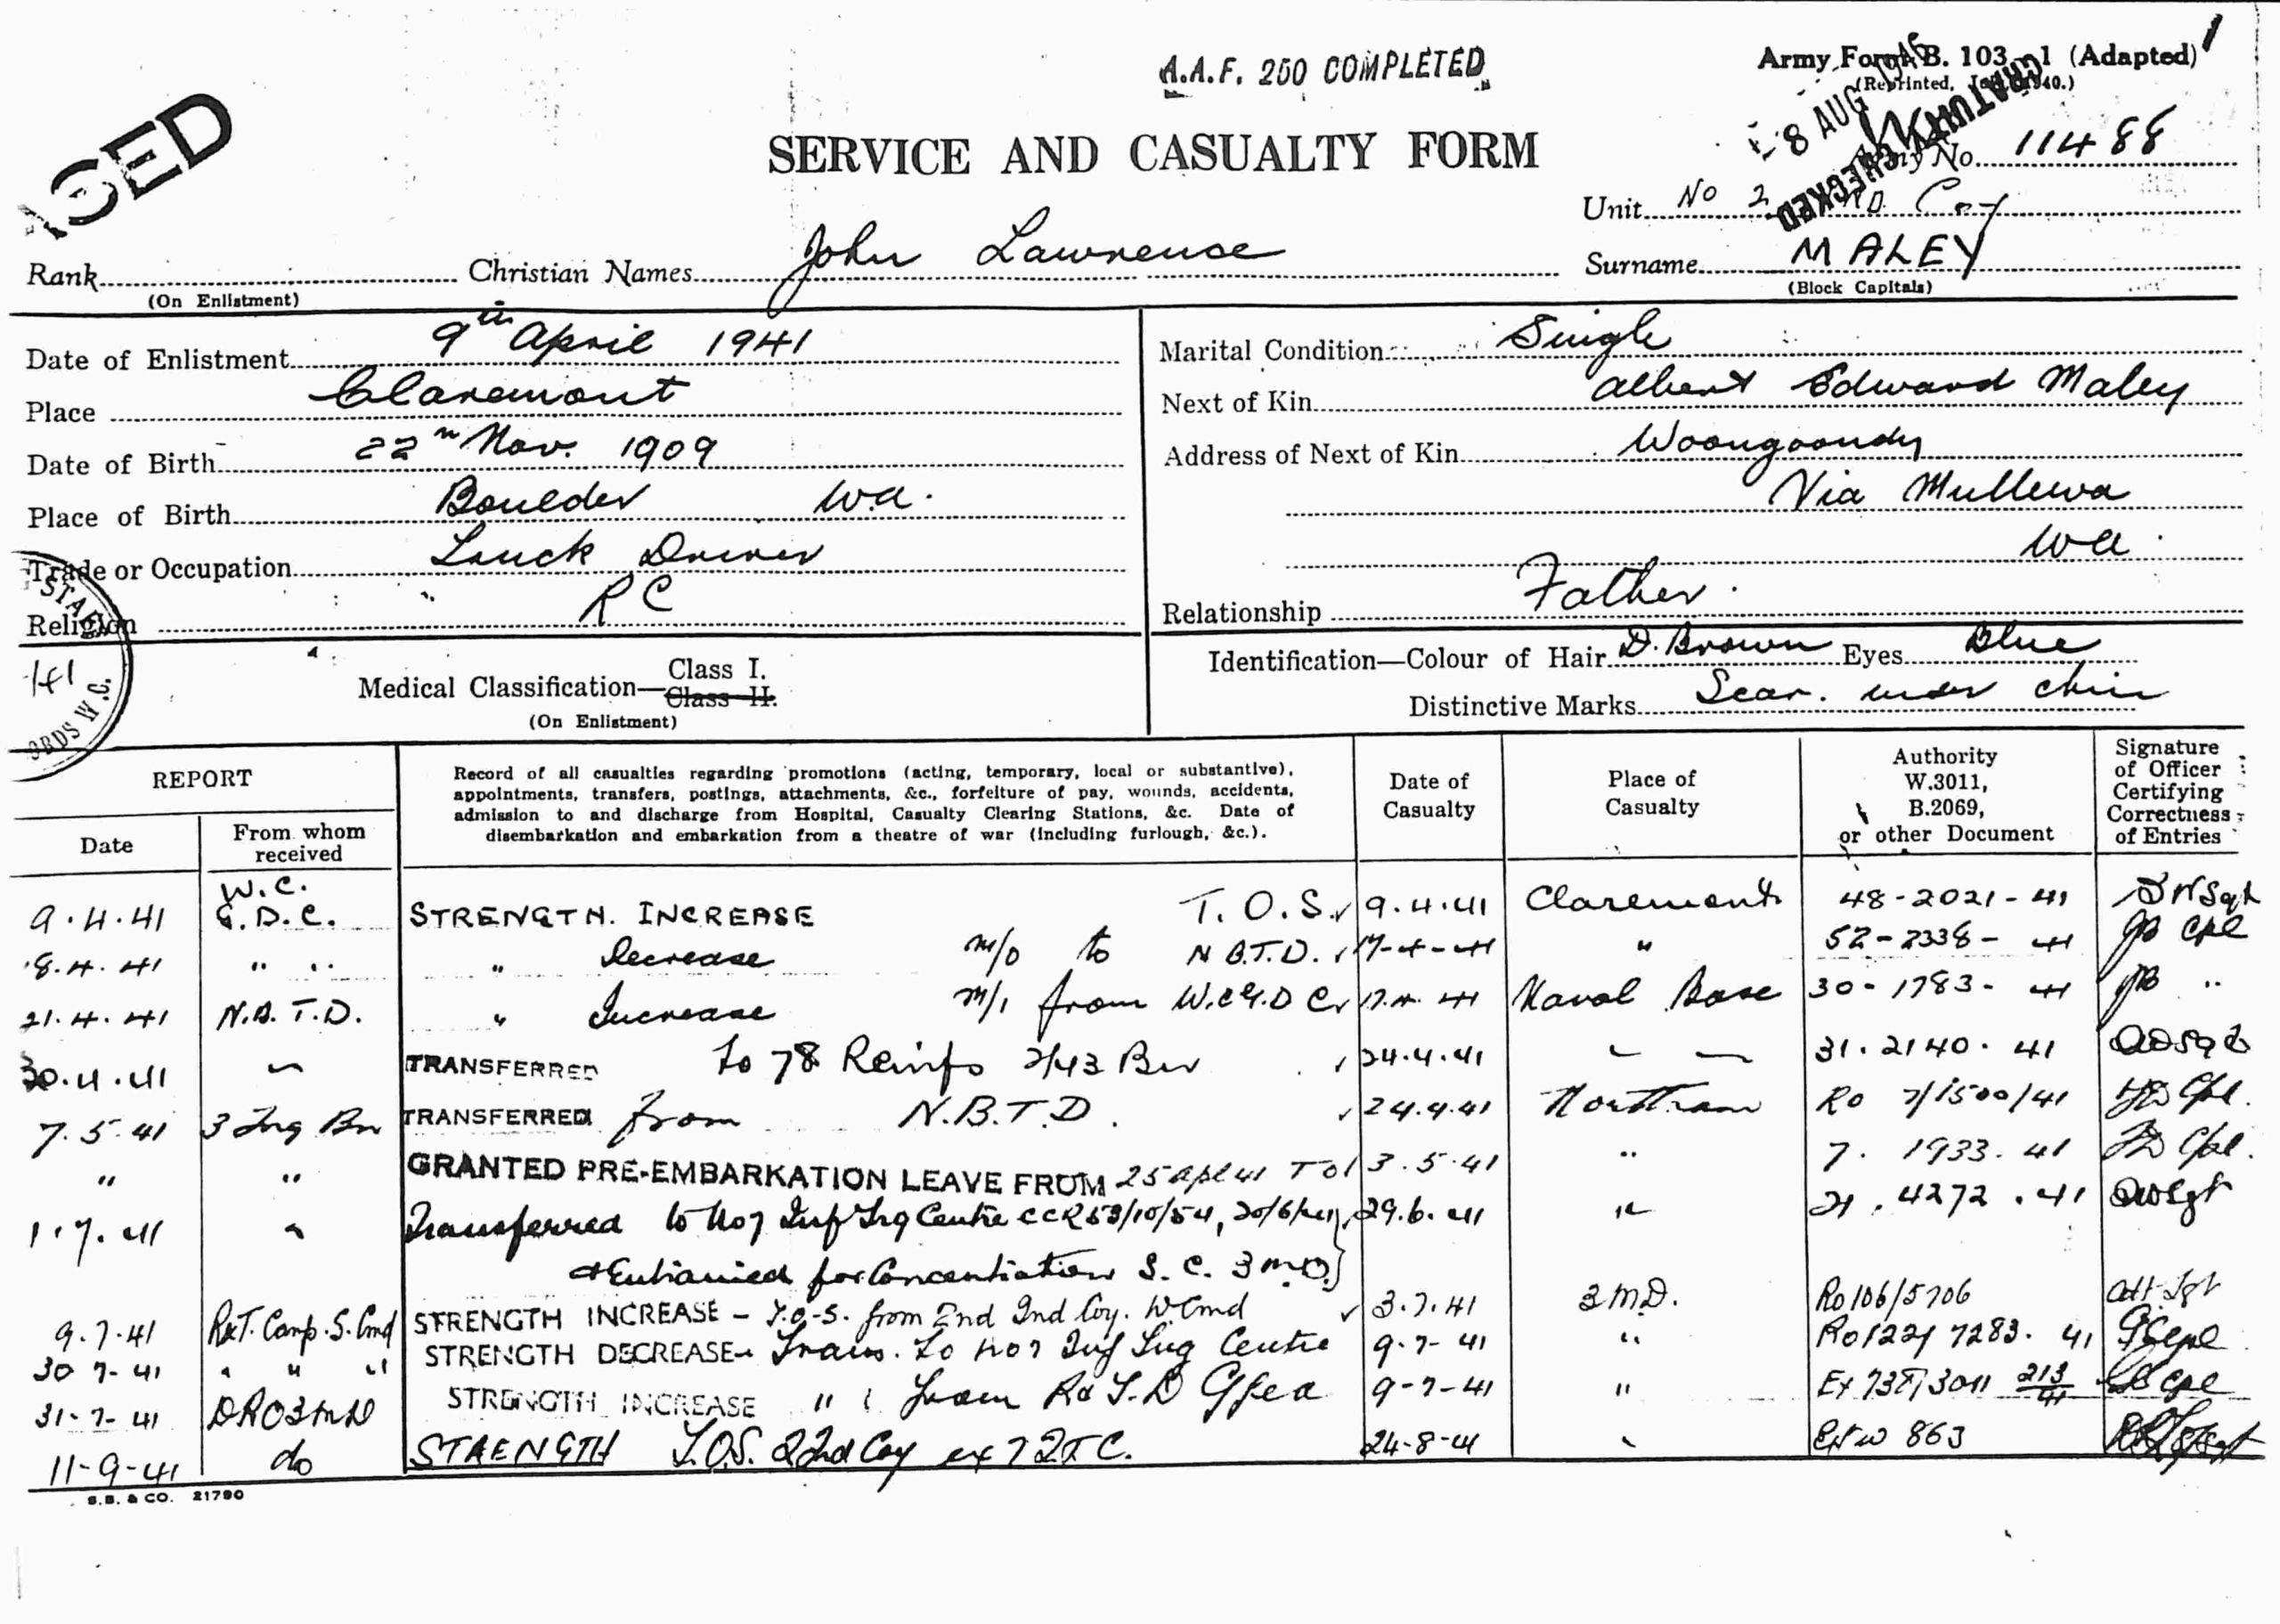 A.A.F. 250 COMPLETED
Army Form B. 103—1 (Adapted) 1
(Reprinted, 1940.)
8 AUG 1946
GRATUITY
CHECKED
SED
SERVICE AND CASUALTY FORM
Army No. 11488
Unit No 2 Coy
Rank Christian Names John Lawrence Surname MALEY
(On Enlistment) (Block Capitals)
Date of Enlistment 9th April 1941
Place Claremont
Date of Birth 22n Nov. 1909
Place of Birth Boulder W.A.
Trade or Occupation Truck Driver
Religion RC
Marital Condition Single
Next of Kin Albert Edward Maley
Address of Next of Kin Woongoondy
Via Mullewa
WA.
Relationship Father.
STAFF
41
ORDS W.C.
Medical Classification— Class I.
Class II.
(On Enlistment)
Identification—Colour of Hair D. Brown Eyes Blue
Distinctive Marks Scar. under chin
REPORT
Date
From whom received
Record of all casualties regarding promotions (acting, temporary, local or substantive),
appointments, transfers, postings, attachments, &c., forfeiture of pay, wounds, accidents,
admission to and discharge from Hospital, Casualty Clearing Stations, &c. Date of
disembarkation and embarkation from a theatre of war (including furlough, &c.).
Date of Casualty
Place of Casualty
Authority W.3011, B.2069, or other Document
Signature of Officer Certifying Correctness of Entries
W.C.
9.4.41 G.D.C. STRENGTH. INCREASE T.O.S. 9.4.41 Claremont 48-2021-41 Sgt
8.4.41 " " " Decrease m/o to N.B.T.D. 17-4-41 " 52-2338-41 JB Cpl
21.4.41 N.B.T.D. " Increase m/i from W.C.G.D.C 17.4.41 Naval Base 30-1783-41 JB "
30.4.41 " TRANSFERRED to 7& Reinfs 2/43 Bn 24.4.41 " — 31.2140.41 Sgt
7.5.41 3 Trg Bn TRANSFERRED from N.B.T.D. 24.4.41 Northam Ro 7/1500/41 Cpl.
" " GRANTED PRE-EMBARKATION LEAVE FROM 25 Apl 41 TO 3.5.41 " 7. 1933.41 Cpl.
1.7.41 " Transferred to No 7 Inf Trg Centre CCR 53/10/54, 20/6/41, 29.6.41 " 21.4272.41 Sgt
& Entrained for Concentration S.C. 3 M.D.
9.7.41 R&T. Camp. S. Cmd STRENGTH INCREASE – T.O.S. from 2nd Ind Coy. W Cmd 3.7.41 3 M.D. Ro 106/5706 Sgt
30-7-41 " " " STRENGTH DECREASE – Trans. to No 7 Inf Trg Centre 9-7-41 " Ro 122/7283.41 Cpl
31-7-41 DRO3MD STRENGTH INCREASE " from R&T.D 9-7-41 " 3011 213/41 Cpl
11-9-41 do STRENGTH T.O.S. 2 Ind Coy ex 7 ITC. 24-8-41 " 863
S.B. & CO. 21790